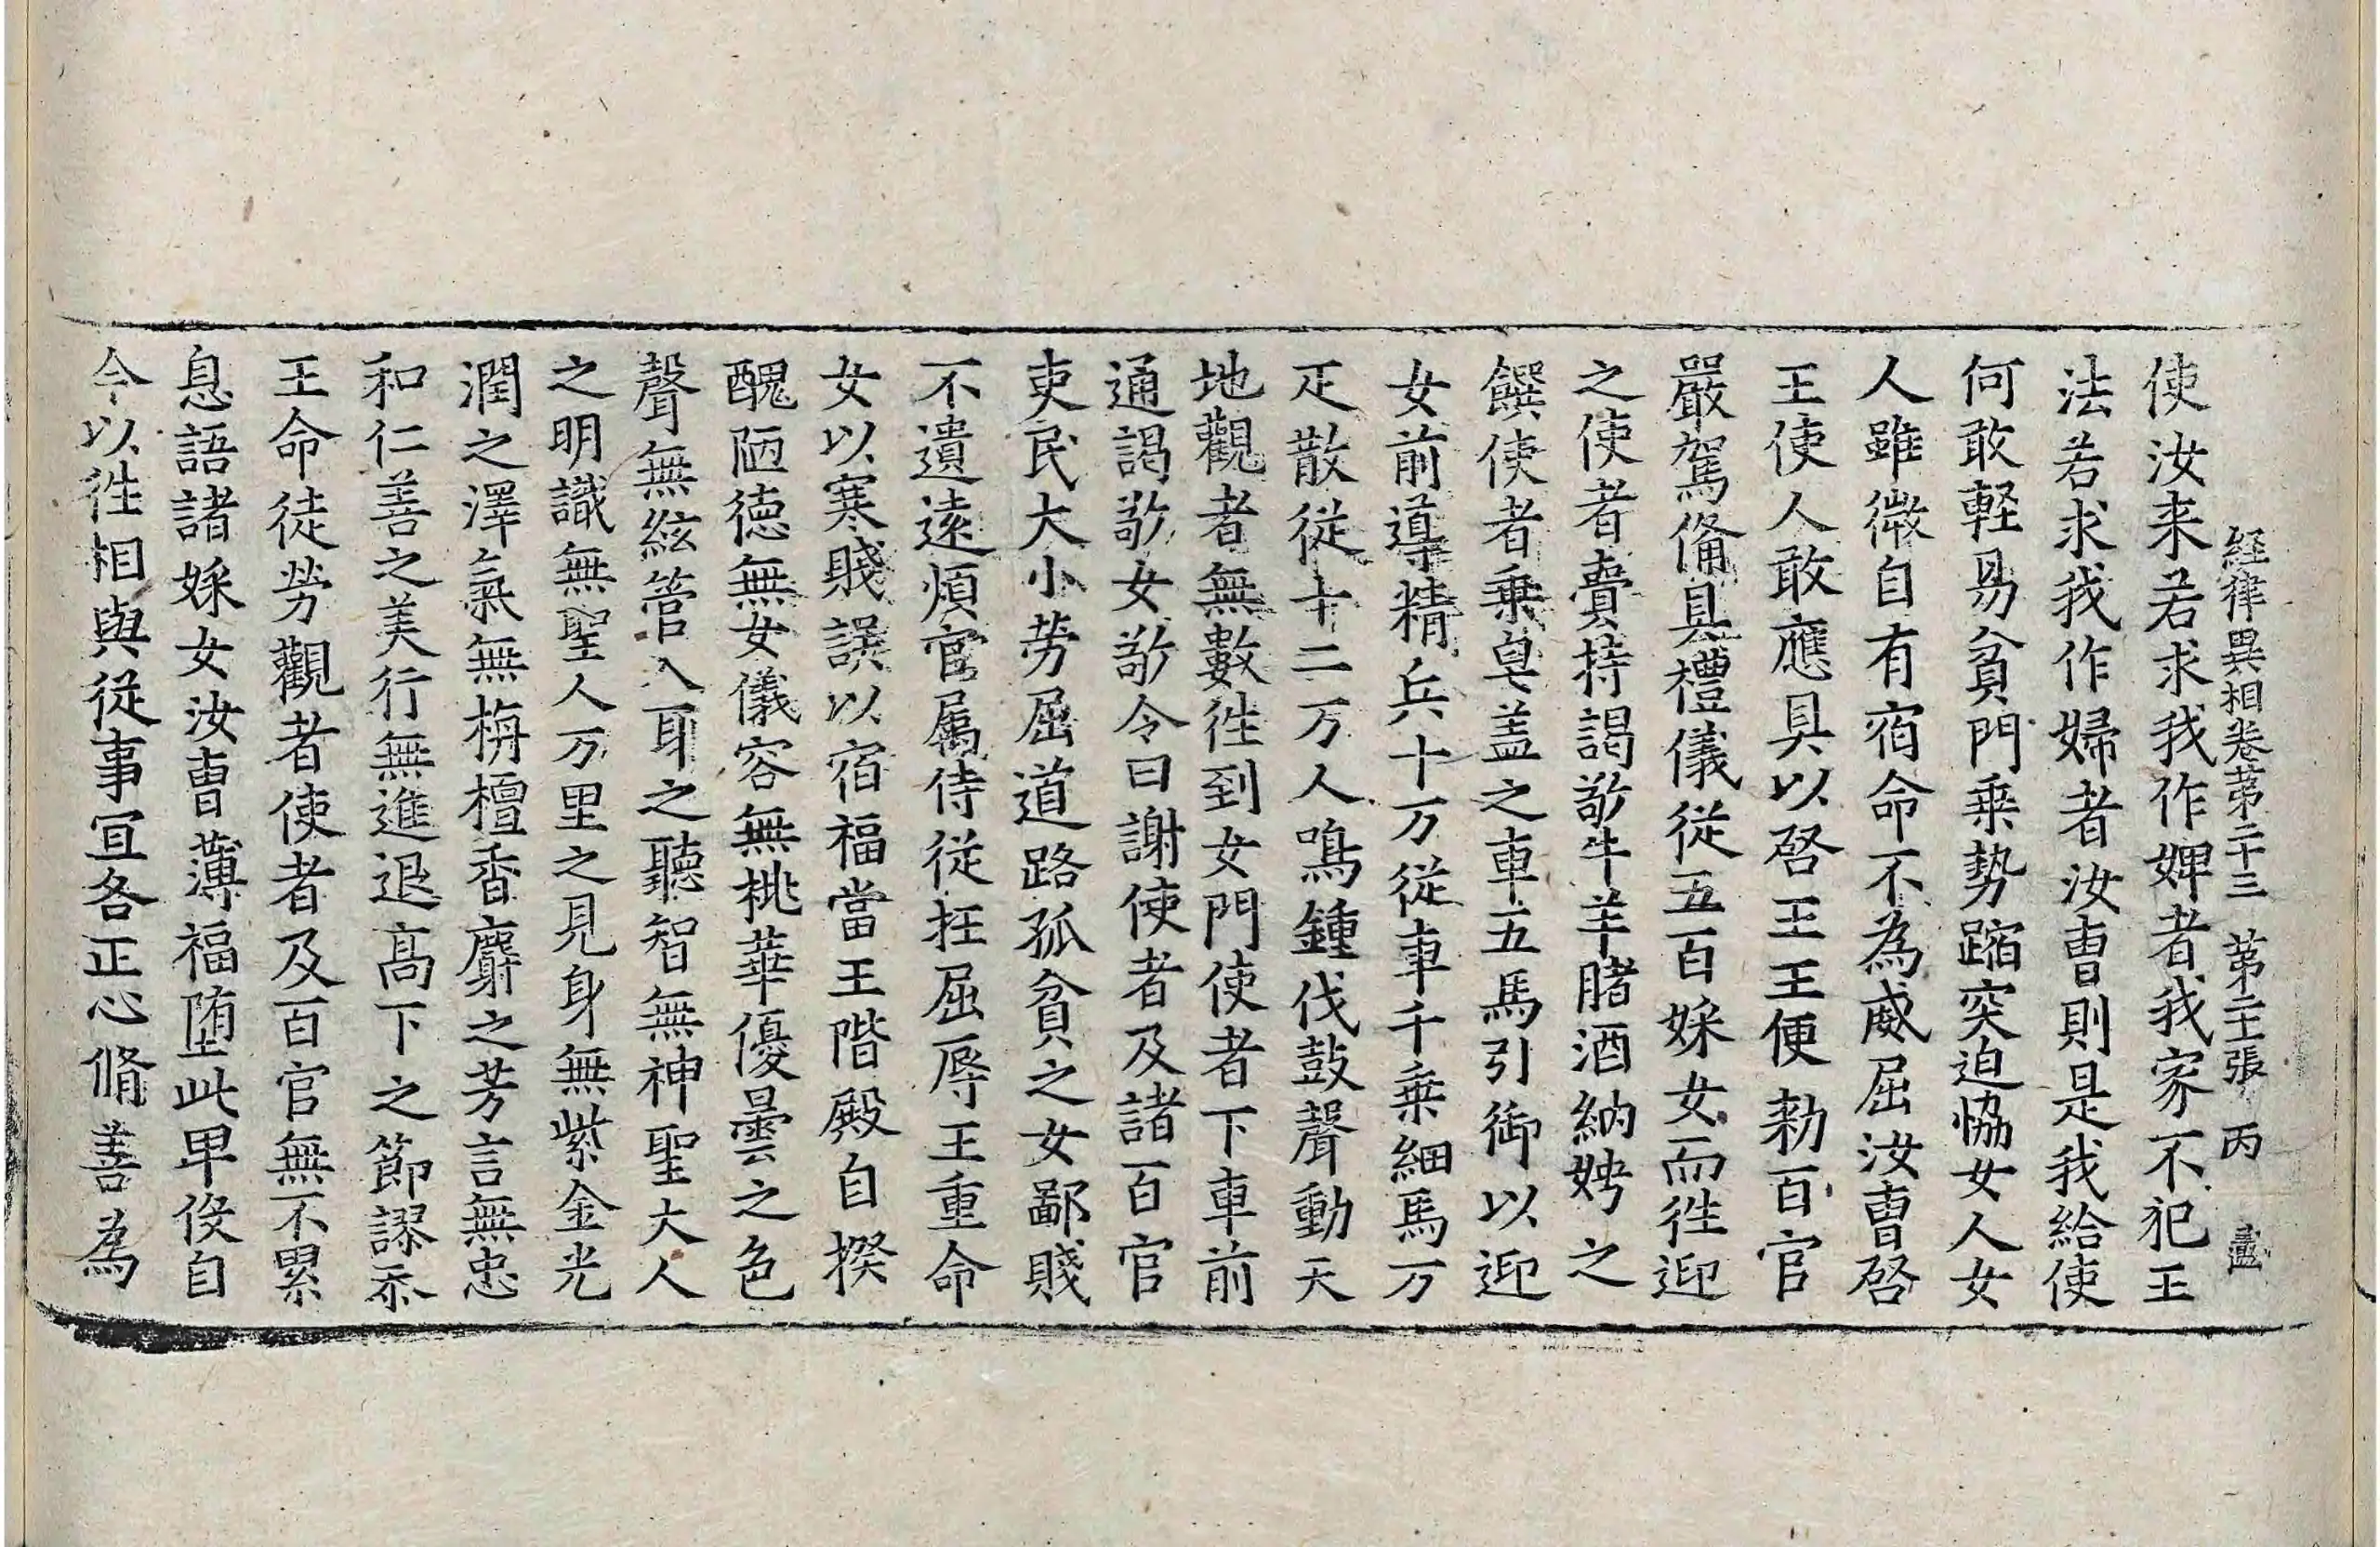 経律異相卷第二十三　第二十張　丙　盡
使汝来若求我作婢者我家不犯王
法若求我作婦者汝曺則是我給使
何敢軽易貧門乗勢蹹突迫恊女人女
人雖微自有宿命不為威屈汝曺啓
王使人敢應具以啓王王便勑百官
嚴駕俻具禮儀從五百婇女而徃迎
之使者賷持謁敬牛羊賭酒納娉之
饌使者乗皁盖之車五馬引御以迎
女前導精兵十万従車千乗細馬万
疋散従十二万人鳴鍾伐鼓聲動天
地觀者無數徃到女門使者下車前
通謁敬女敬令曰謝使者及諸百官
吏民大小勞屈道路孤貧之女鄙賤
不遺遠煩官属侍従抂屈辱王重命
女以寒賤誤以宿福當王階殿自揆
醜陋徳無女儀容無桃華優曇之色
聲無絃管入耳之聽智無神聖大人
之明識無聖人万里之見身無紫金光
潤之澤氣無栴檀香麝之芳言無忠
和仁善之美行無進退髙下之節謬忝
王命徒勞觀者使者及百官無不累
息語諸婇女汝曺薄福堕此卑伇自
今以徃相與従事冝各正心脩善為